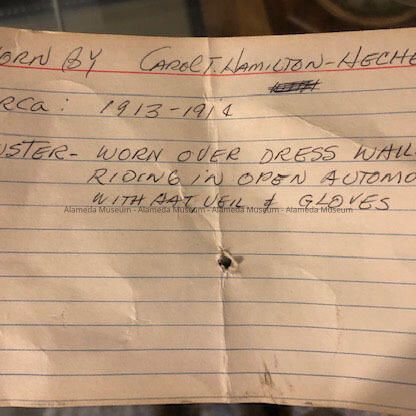 ORN BY CAROL T. HAMILTON-HECHE
RCA: 1913-1914
USTER- WORN OVER DRESS WHIL
RIDING IN OPEN AUTOMO
WITH HAT, VEIL & GLOVES
Alameda Museum - Alameda Museum - Alameda Museum